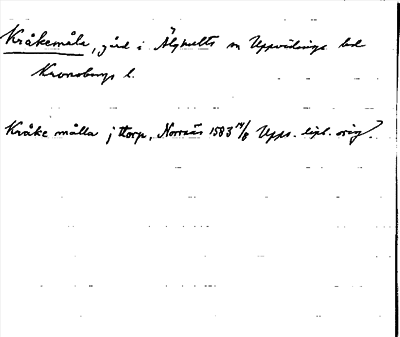 Kråkemåla, gård i Älghults sn Uppvidinge hd
Kronobergs l.
Kråke målla j ttorp, Norraås 1583 14/8 Upps. bibl. orig.